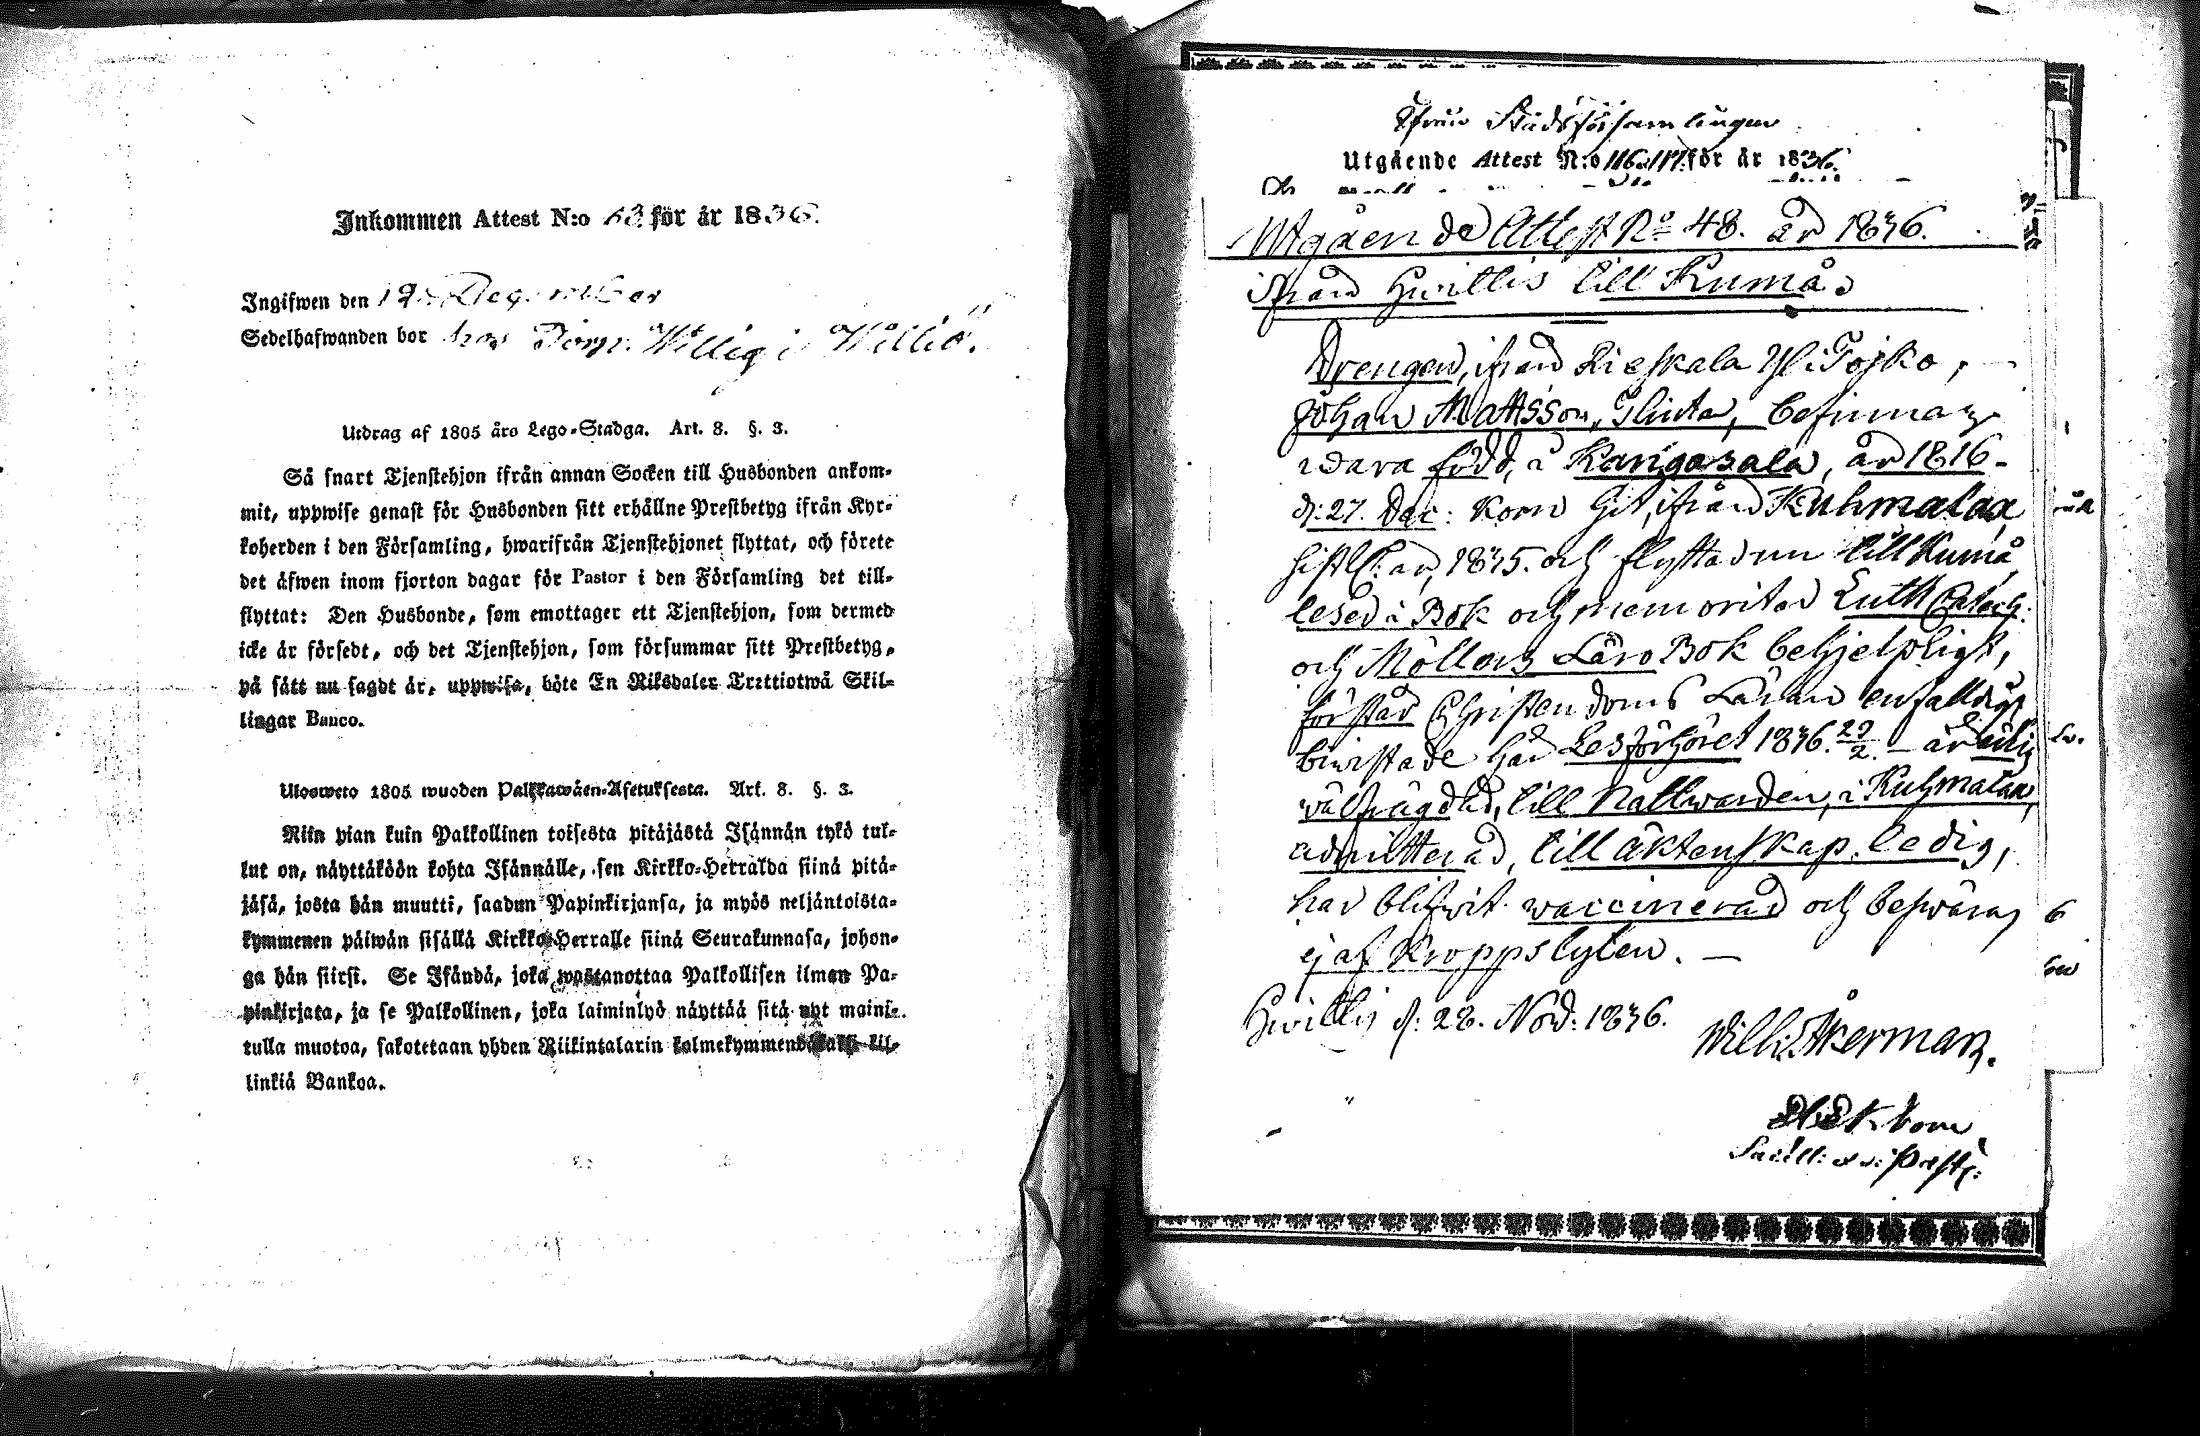 Inkommen Attest N:o 63 för år 1836.
Ingifwen den 19 December
Sedelhafwanden bor hos
Utdrag af 1805 års Lego-Stadga. Art. 8. §. 3.
Så snart Tjenstehjon ifrån annan Socken till Husbonden ankom-
mit, uppwise genast för Husbonden sitt erhållne Prestbetyg ifrån Kyr-
koherden i den Församling, hwarifrån Tjenstehjonet flyttat, och förete
det äfwen inom fjorton dagar för Pastor i den Församling det till-
flyttat: Den Husbonde, som emottager ett Tjenstehjon, som dermed
icke är försedt, och det Tjenstehjon, som försummar sitt Prestbetyg,
på sätt nu sagdt är, uppwisa, böte En Riksdaler Trettiotwå Skil-
lingar Banco.
Ulosweto 1805 wuoden Palkkawäen-Asetuksesta. Art. 8. §. 3.
Niin pian kuin Palkollinen toisesta pitäjästä Isännän tykö tul-
lut on, näyttäköön kohta Isännälle, sen Kirkko-Herralda siinä pitä-
jäsä, josta hän muutti, saadun Papinkirjansa, ja myös neljäntoista-
kymmenen päiwän sisällä Kirkko-Herralle siinä Seurakunnasa, johon-
ga hän siirsi. Se Isändä, joka wastanottaa Palkollisen ilman Pa-
pinkirjata, ja se Palkollinen, joka laiminlyö näyttää sitä nyt maini-
tulla muotoa, sakotetaan yhden Riikintalarin kolmekymmendäkaksi kil-
linkiä Bankoa.
Ifrån Stadsförsamlingen
Utgående Attest N:o 116.117. för år 1836.
Utgående Attest No 48. år 1836.
ifrån Hwittis till Kumå.
Drengen, ifrån Rieskala Yli Tojko,
Johan Mattsson, befinnas
wara född, i Karigasala, år 1816
d: 27. Dec: kom hit, ifrån Kuhmalax
sistl. år, 1835. och flyttar nu till Kumå,
läser i Bok och memoriter Luth Catech:
och Möllers Läro Bok behjelpligt,
förstår Christendoms Läran enfaldigt
biwistade här Läsförhöret 1836. 29/2. – är
wälfrägdad, till Nattwarden, i Kuhmalax,
admitterad, till äktenskap ledig,
har blifwit waccinerad och beswäras
ej af Kroppslyten. —
Hwittis d: 28. Nov: 1836.
Wilh. Åkerman.